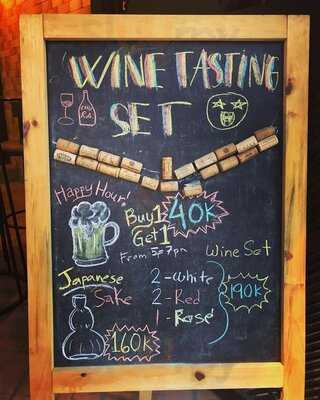 WINE TASTING
SET
Happy Hour!
Buy 1
Get 1
40K
From 5-7pm
Wine Set
2-White
2-Red
1-Rosé
190K
Japanese
Sake
160K